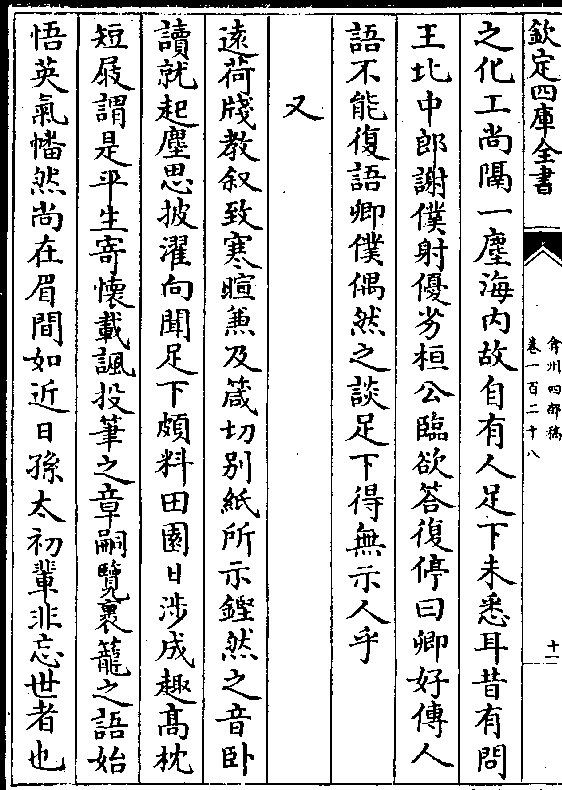 欽定四庫全書
弇州四部稿
卷一百二十八
十一
之化工尚隔一塵海内故自有人足下未悉耳昔有問
王北中郎謝僕射優劣桓公臨欲答復停曰卿好傳人
語不能復語卿僕偶然之談足下得無示人乎
又
遠荷牋教叙致寒暄兼及箴切别紙所示鏗然之音卧
讀就起塵思披濯向聞足下頗料田園日涉成趣高枕
短屐謂是平生寄懷載諷投筆之章嗣覽裹蘢之語始
悟英氣幡然尚在眉間如近日孫太初輩非忘世者也